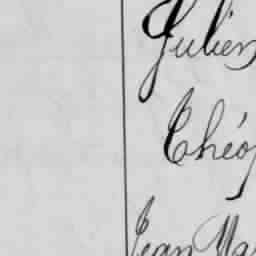 Julien
Théop
Jean Ma